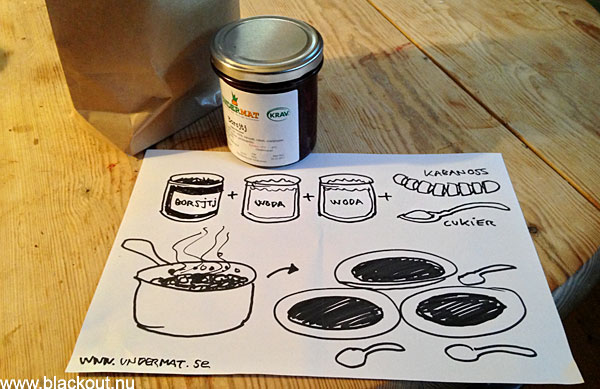 UNDERMAT
KRAV
Borsjtj
KABANOSS
BORSJTJ + WODA + WODA +
CUKIER
www.undermat.se
www.blackout.nu